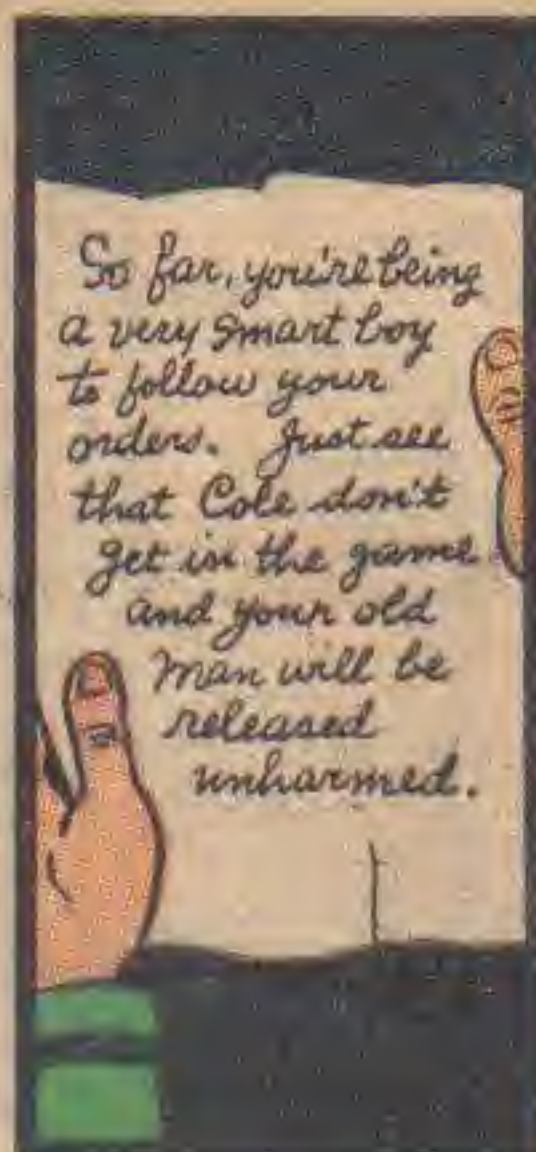 So far, you're being
a very smart boy
to follow your
orders. Just see
that Cole don't
get in the game
and your old
man will be
released
unharmed.